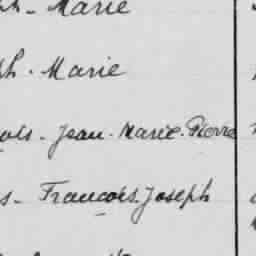 ph - Marie
ph. Marie
ois - Jean. Marie. Pierre
s - Francois. Joseph